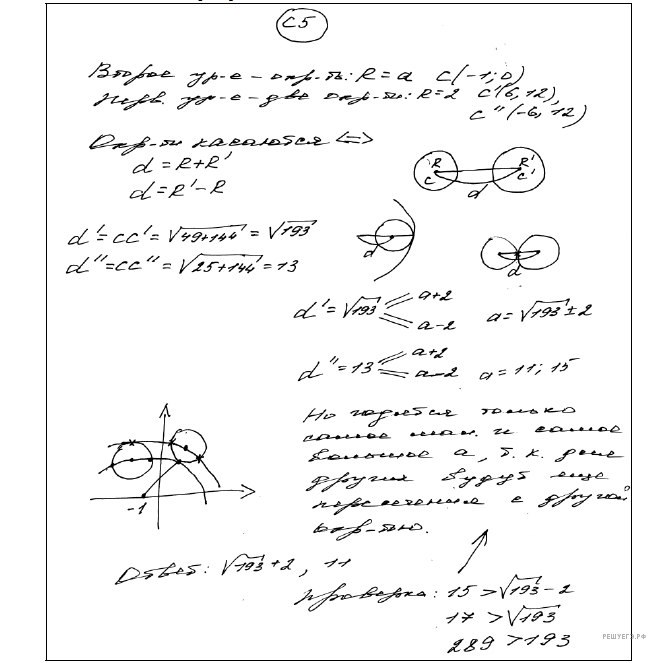 С5
Второе ур-е – окр-ть: R = a C(-1; 0)
Перв. ур-е – две окр-ти: R = 2 C'(6, 12),
C''(-6, 12)
Окр-ти касаются <=>
d = R + R'
d = R' - R
R R'
C C'
d
d' = CC' = √49+144 = √193
d'' = CC'' = √25+144 = 13
d
d
d' = √193 = a+2
= a-2
a = √193 ± 2
d'' = 13 = a+2
= a-2
a = 11; 15
Но годятся только
самое мал. и самое
большое a, т.к. для
других будут еще
пересечения с другой
окр-тью.
-1
Ответ: √193 + 2, 11
Проверка: 15 > √193 - 2
17 > √193
289 > 193
РЕШУЕГЭ.РФ